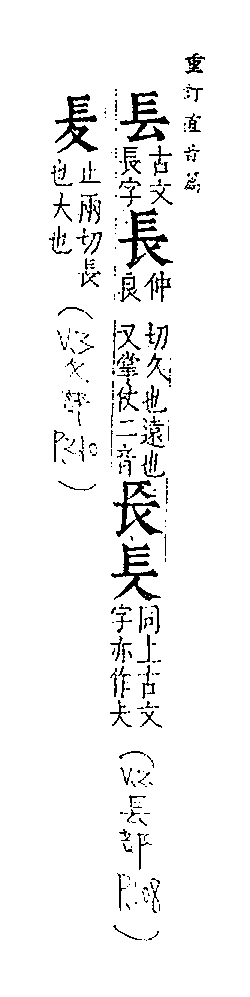 重訂直音篇
镸古文長字長仲良切久也遠也又掌仗二音同上古文字亦作（V.2.長部P.108）
止兩切長也大也（V.3夂部P.210）